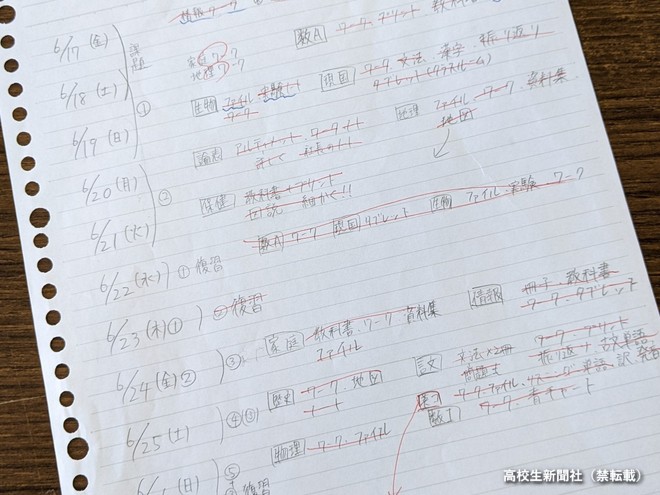 6/17(金) 課題 家庭ワーク 数A ワーク プリント 教科書
地理ワーク
6/18(土) ① 生物 ファイル 実験ノート 現国 ワーク 文法 漢字 振り返り
ワーク タブレット(クラスルーム)
6/19(日) 論表 ワーク ノート 地理 ファイル ワーク 資料集
地図
6/20(月) ② 保健 教科書 プリント
図説 細かく!!
6/21(火) 数A ワーク 現国 タブレット 生物 ファイル 実験 ワーク
6/22(水) ① 復習
6/23(木)① ② 復習
③ 家庭 教科書 ワーク 資料集 情報 冊子 教科書
ファイル ワーク タブレット
6/24(金)② 歴史 ワーク 地図 言文 文法×2冊 ワーク プリント
ノート 問題文 振り返り 古文単語
6/25(土) ④③ 物理 ワーク ファイル 数I ワーク 青チャート
(日) ⑤
復習
高校生新聞社(禁転載)